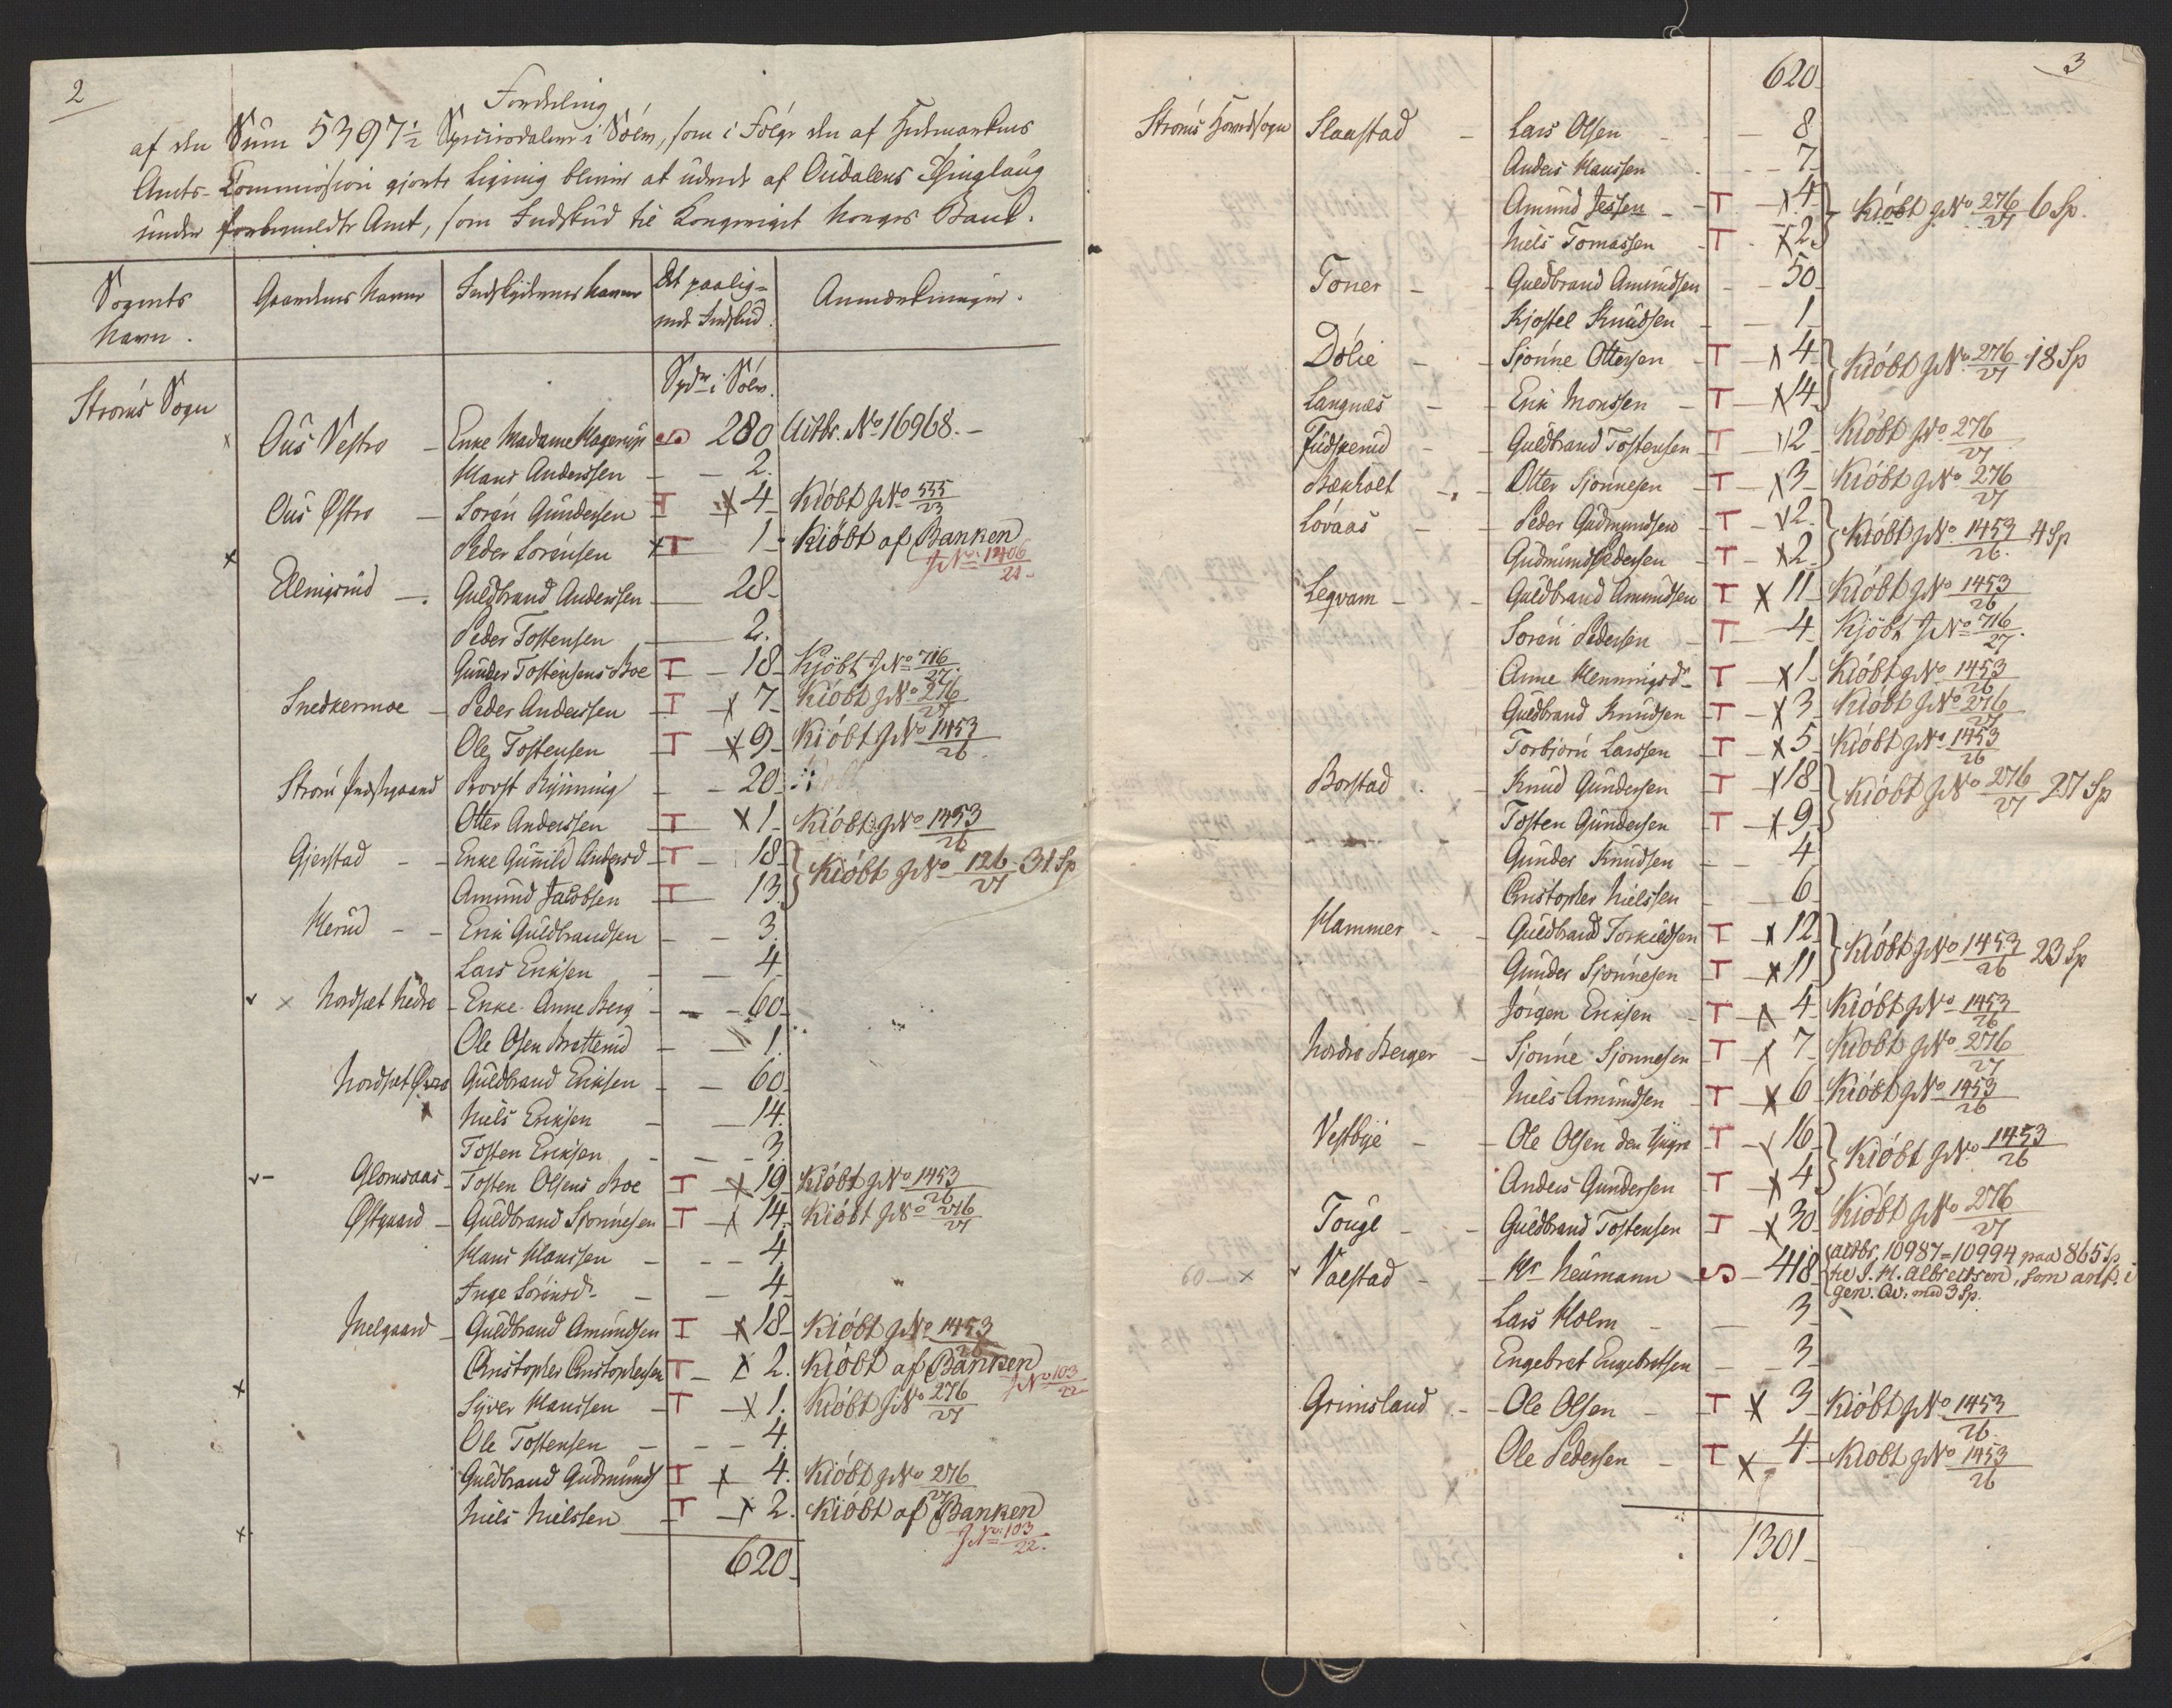 2
Fordeling
af den Sum 5397½ Speciesdaler i Sölv, som i Fölge den af Hedmarkens
Amts-Commission gjorte Ligning bliver at udrede af Oudalens Thinglaug
under forbemeldte Amt, som Indskud til Kongeriget Norges Bank.
Sognets Navn. Gaardenes Navne Indskydernes Navne Det paalignede Indskud. Anmærkninger.
Spdr i Sölv.
Ströms Sogn
Ous Vestre – Enke Madame Kagerup S 280 Actbr. No 16968. –
Hans Anderssen – – 2.
Ous Østre – Sorèn Gundersen T x 4 Kióbt JNo 555/23
Peder Sorensen x T 1 – Kióbt af Banken
JNo 1406/22
Elenigsrud – Guldbrand Anderssen 28
Peder Tostensen 2.
Gunder Tostensens Boe T – 18 Kjöbt JNo 716/27
Snedkermoe – Peder Anderssen T x 7 Kióbt JNo 276/27
Ole Tostensen T x 9 Kióbt JNo 1453/26
Ström Præstgaard Provst Rynning – – 20
Otter Anderssen T x 1 Kióbt JNo 1453/26
Gjerstad – – Enke Gunild Andersd T – 18 } Kióbt JNo 126/27 31 Sp
Amund Jacobsen T 13
Herud – – Erik Guldbrandsen – – 3.
Lars Eriksen – 4
x Nordset Nedre – Enke Anne Berg – – 60
Ole Olsen Bratterud – 1.
Nordset Øvre Guldbrand Eriksen – – 60
Niels Eriksen – – 14.
Tosten Eriksen – – 3.
Glomsaas – Tosten Olsens Boe T x 19 Kióbt JNo 1453/26
Østgaard – Guldbrand Sjonnesen T x 14 Kióbt JNo 276/27
Hans Hanssen – – 4.
Inge Sorensdr – – 4
Melgaard – Guldbrand Amundsen T x 18 Kióbt JNo 1453/26
Christopher Christophersen T x 2. Kióbt af Banken
JNo 103/22
Syver Hanssen T x 1. Kióbt JNo 276/27
Ole Tostensen – – 4.
Guldbrand Gudmunds T x 4. Kióbt JNo 276/27
Niels Nielssen T x 2. Kióbt af Banken
JNo 103/22.
620
3
620
Ströms Hovedsogn Slaastad – Lars Olsen – 8
Anders Hanssen – 7
Amund Jessen – T x 4 } Kióbt JNo 276/27 6 Sp.
Niels Tomassen T x 2
Toner – – Guldbrand Amundsen – 50
Kjostel Knudsen – 1
Dölie – – Sjönne Ottersen T x 4 } Kióbt JNo 276/27 18 Sp
Langnæs – – Erik Monssen – T x 14
Fudskerud – Guldbrand Tostensen T x 2 Kióbt JNo 276/27
Bækholt – – Otter Sjonnesen T x 3 Kióbt JNo 276/27
Lövaas – – Peder Gudmundsen T x 2 } Kióbt JNo 1453/26 4 Sp
Gudmund Pedersen T x 2
Legvam – – Guldbrand Amundsen T x 11 Kióbt JNo 1453/26
Sorèn Pedersen T 4 Kjöbt JNo 716/27.
Anne Henningsdr T x 1 Kióbt JNo 1453/26
Guldbrand Knudsen T x 3 Kióbt JNo 276/27
Torbjorn Larssen T x 5 Kióbt JNo 1453/26
Borstad – Knud Gundersen T x 18 } Kióbt JNo 276/27 27 Sp
Tosten Gundersen T x 9
Gunder Knudsen – 4
Christopher Nielssen – 6
Hammer – – Guldbrand Torkildsen T x 12 } Kióbt JNo 1453/26 23 Sp
Gunder Sjonnesen T x 11
Jörgen Eriksen T x 4 Kióbt JNo 1453/26
Nordre Berger – Sjonne Sjonnesen T x 7 Kióbt JNo 276/27
Niels Amundsen T x 6 Kióbt JNo 1453/26
Vestbye – – Ole Olsen den Yngre T x 16 } Kióbt JNo 1453/26
Anders Gundersen T x 4
Touge – – Guldbrand Tostensen T x 30 Kióbt JNo 276/27
x Valstad – – Hr Neumann S 418 { actbr. 10987=10994 paa 865 Sp.
til J. H. Albrektsen, som anf. i
gen. Qv. med 3 Sp.
Lars Holm – 3
Engebret Engebretsen – 3
Grimsland – – Ole Olsen – T x 3 Kióbt JNo 1453/26
Ole Pedersen – T x 4 Kióbt JNo 1453/26
1301